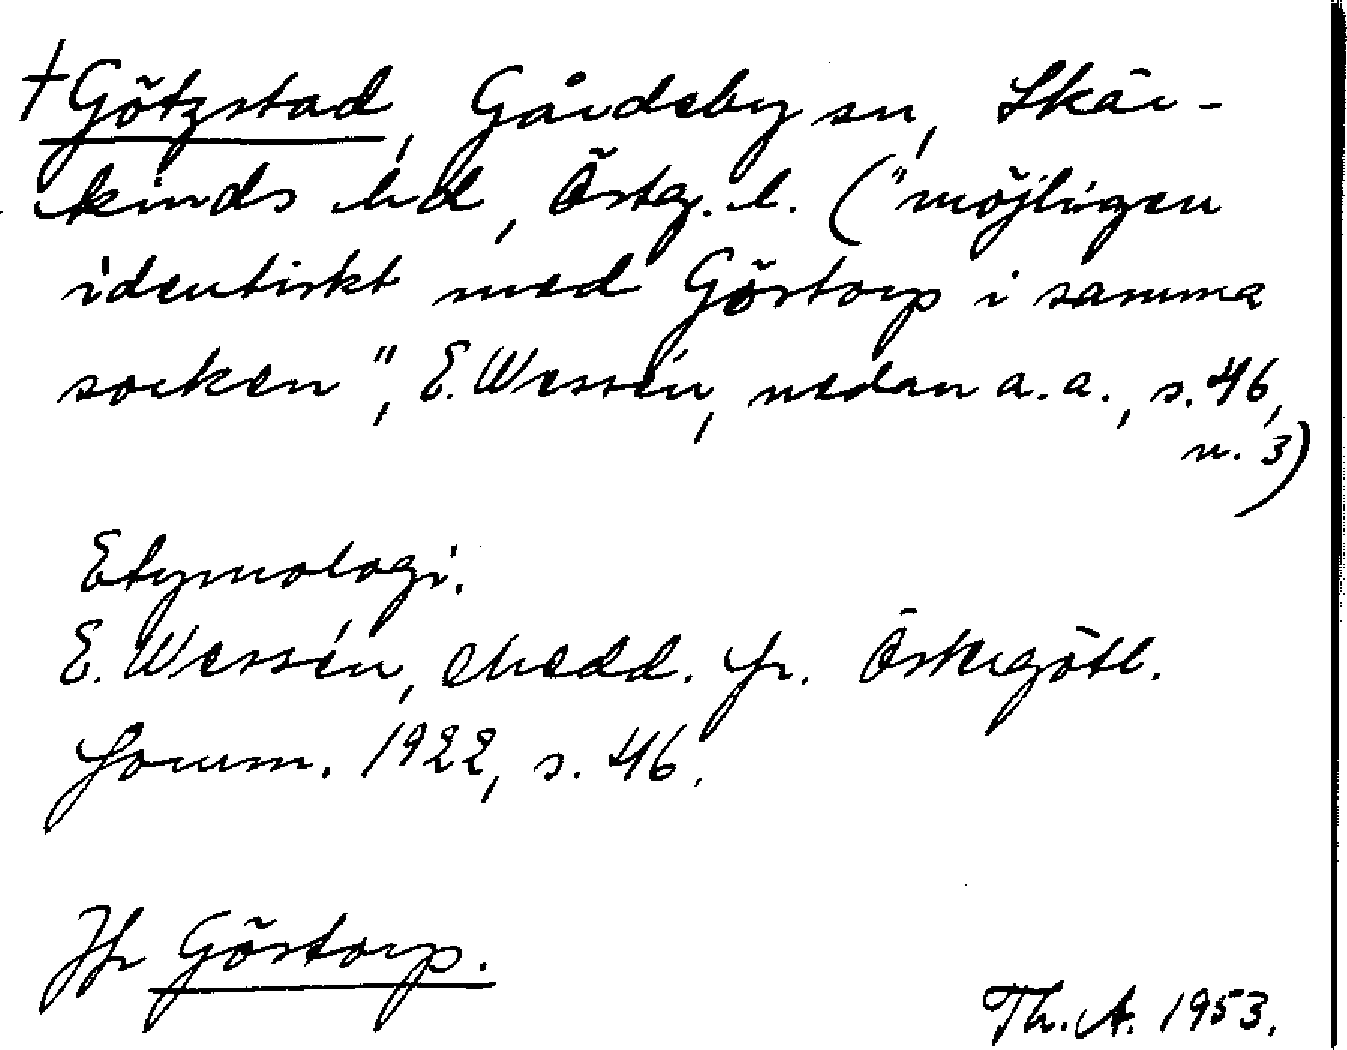 †Götzstad, Gårdeby sn, Skär-
kinds hd, Östg. l. ("möjligen
identiskt med Göstorp i samma
socken", E. Wessén, nedan a. a., s. 46,
n. 3)
Etymologi.
E. Wessén, Medd. fr. Östergötl.
fornm. 1922, s. 46.
Jfr Göstorp.
Th. A. 1953.